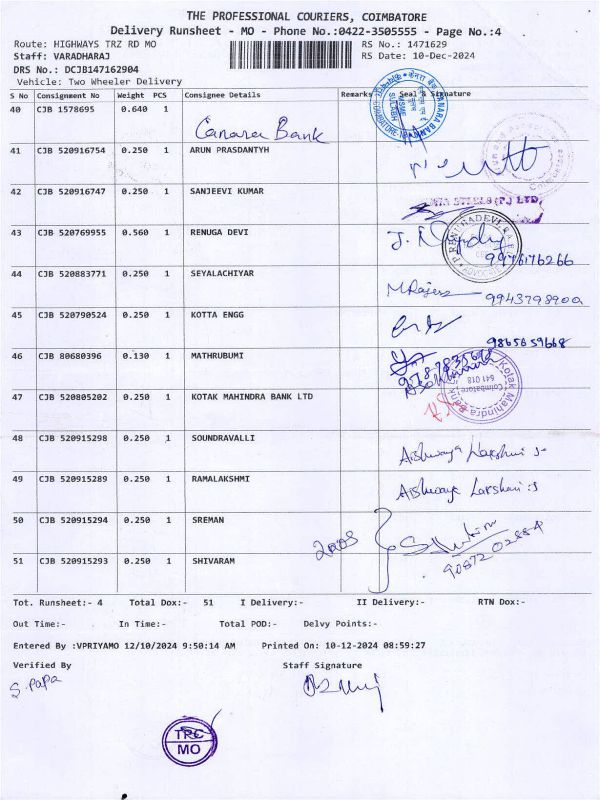 THE PROFESSIONAL COURIERS, COIMBATORE
Delivery Runsheet - MO - Phone No.:0422-3505555 - Page No.:4
Route: HIGHWAYS TRZ RD MO RS No.: 1471629
Staff: VARADHARAJ RS Date: 10-Dec-2024
DRS No.: DCJB147162904
Vehicle: Two Wheeler Delivery
S No Consignment No Weight PCS Consignee Details Remarks Seal & Signature
40 CJB 1578695 0.640 1
Canara Bank
41 CJB 520916754 0.250 1 ARUN PRASDANTYH
42 CJB 520916747 0.250 1 SANJEEVI KUMAR
43 CJB 520769955 0.560 1 RENUGA DEVI
ADVOCATE
9976176266
44 CJB 520883771 0.250 1 SEYALACHIYAR
9943798900
45 CJB 520790524 0.250 1 KOTTA ENGG
9865659668
46 CJB 80680396 0.130 1 MATHRUBUMI
47 CJB 520805202 0.250 1 KOTAK MAHINDRA BANK LTD
Kotak Mahindra Bank
Coimbatore
641 018
48 CJB 520915298 0.250 1 SOUNDRAVALLI
49 CJB 520915289 0.250 1 RAMALAKSHMI
50 CJB 520915294 0.250 1 SREMAN
51 CJB 520915293 0.250 1 SHIVARAM
Tot. Runsheet:- 4 Total Dox:- 51 I Delivery:- II Delivery:- RTN Dox:-
Out Time:- In Time:- Total POD:- Delvy Points:-
Entered By :VPRIYAMO 12/10/2024 9:50:14 AM Printed On: 10-12-2024 08:59:27
Verified By Staff Signature
S. PaPa
TPC
MO